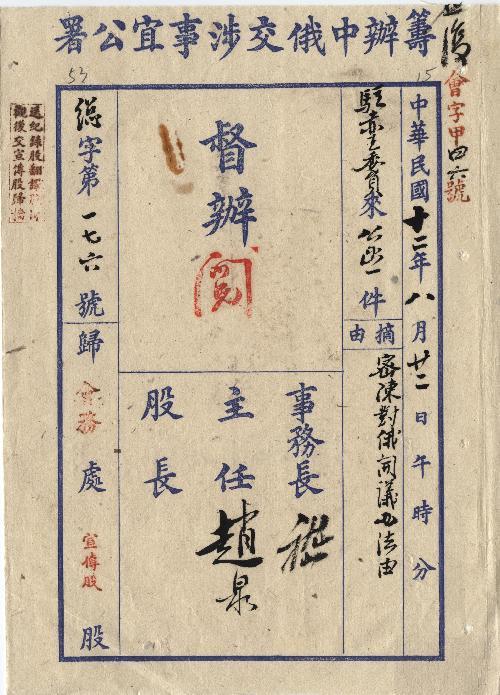 籌辦中俄交涉事宜公署
會字甲四六號
15
53
中華民國十二年八月廿二日午時分
駐赤委員來公函一件
摘由
密陳對俄開議办法由
督辦
閱
事務長
主任 趙泉
股長
總字第一七六號
歸會務處宣傳股股
送紀錄股翻譯股
後交宣傳股歸檔